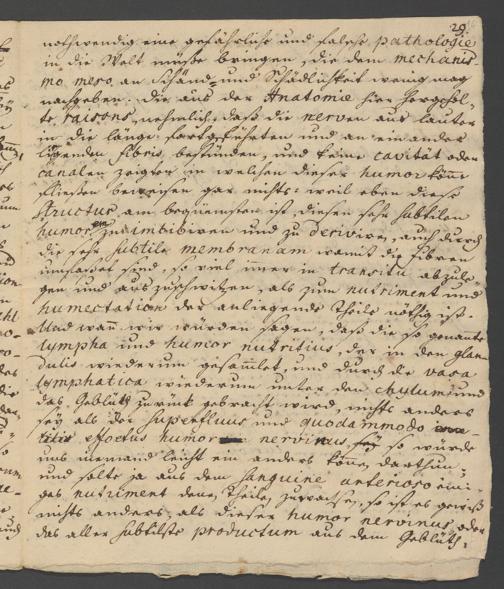 29
nothwendig eine gefährliche und falsche pathologie
in die Welt müste bringen, die dem mechanis-
mo mero an Schänd- und Schädlichkeit wenig mag
nachgeben. Die aus der Anatomie hier hergehol-
te raisons, nehmlich, daß die nerven aus lauter
in die länge fortgeführten und an ein ander
ligenden fibris bestünden, und keine cavität oder
canalen zeigten in welchen dieser humor könne
fließen beweisen gar nichts: weil eben diese
structur am bequemsten ist, diesen sehr subtilen
humorem zu imbibiren und zu deriviren, auch durch
die sehr subtile membranam womit die fibren
umfasset sind so viel in transitu abzule-
gen und auszuschwitzen, als zum nutriment und
humectation der anliegende Theile nöthig ist.
Und wan wir würden sagen, daß die so genante
lympha und humor nutritius, der in den glan-
dulis wiederum gesamlet, und durch die vasa
lymphatica wiederum unter den chylum und
das Geblüth zurück gebracht wird, nichts anders
sey als der superfluus und quodammodo
effoetus humor nervinus, so würde
uns niemand leicht ein anders könne darthun;
und solte ja aus dem sanguine arterioso eini-
ges nutriment denen Theilen zuwachsen, so ist es gewiß
nichts anders, als dieser humor nervinus, oder
das aller subtilste productum aus dem Geblüth,